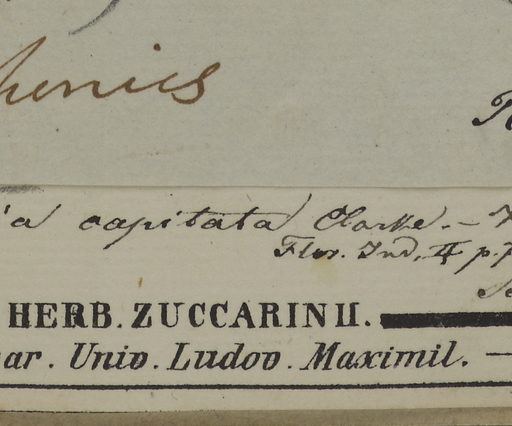 'a capitata Clarke. –
Flor. Ind. II p.
HERB. ZUCCARINII.
ar. Univ. Ludov. Maximil. —